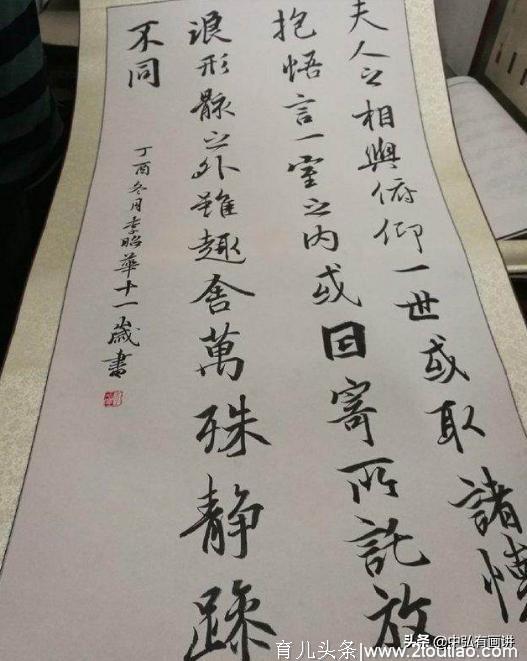 夫人之相與俯仰一世或取諸懷
抱悟言一室之内或因寄所託放
浪形骸之外雖趣舍萬殊静躁
不同
丁酉冬月李昭華十一歲書
头条 @中弘有画讲
育儿头条 www.2toutiao.com